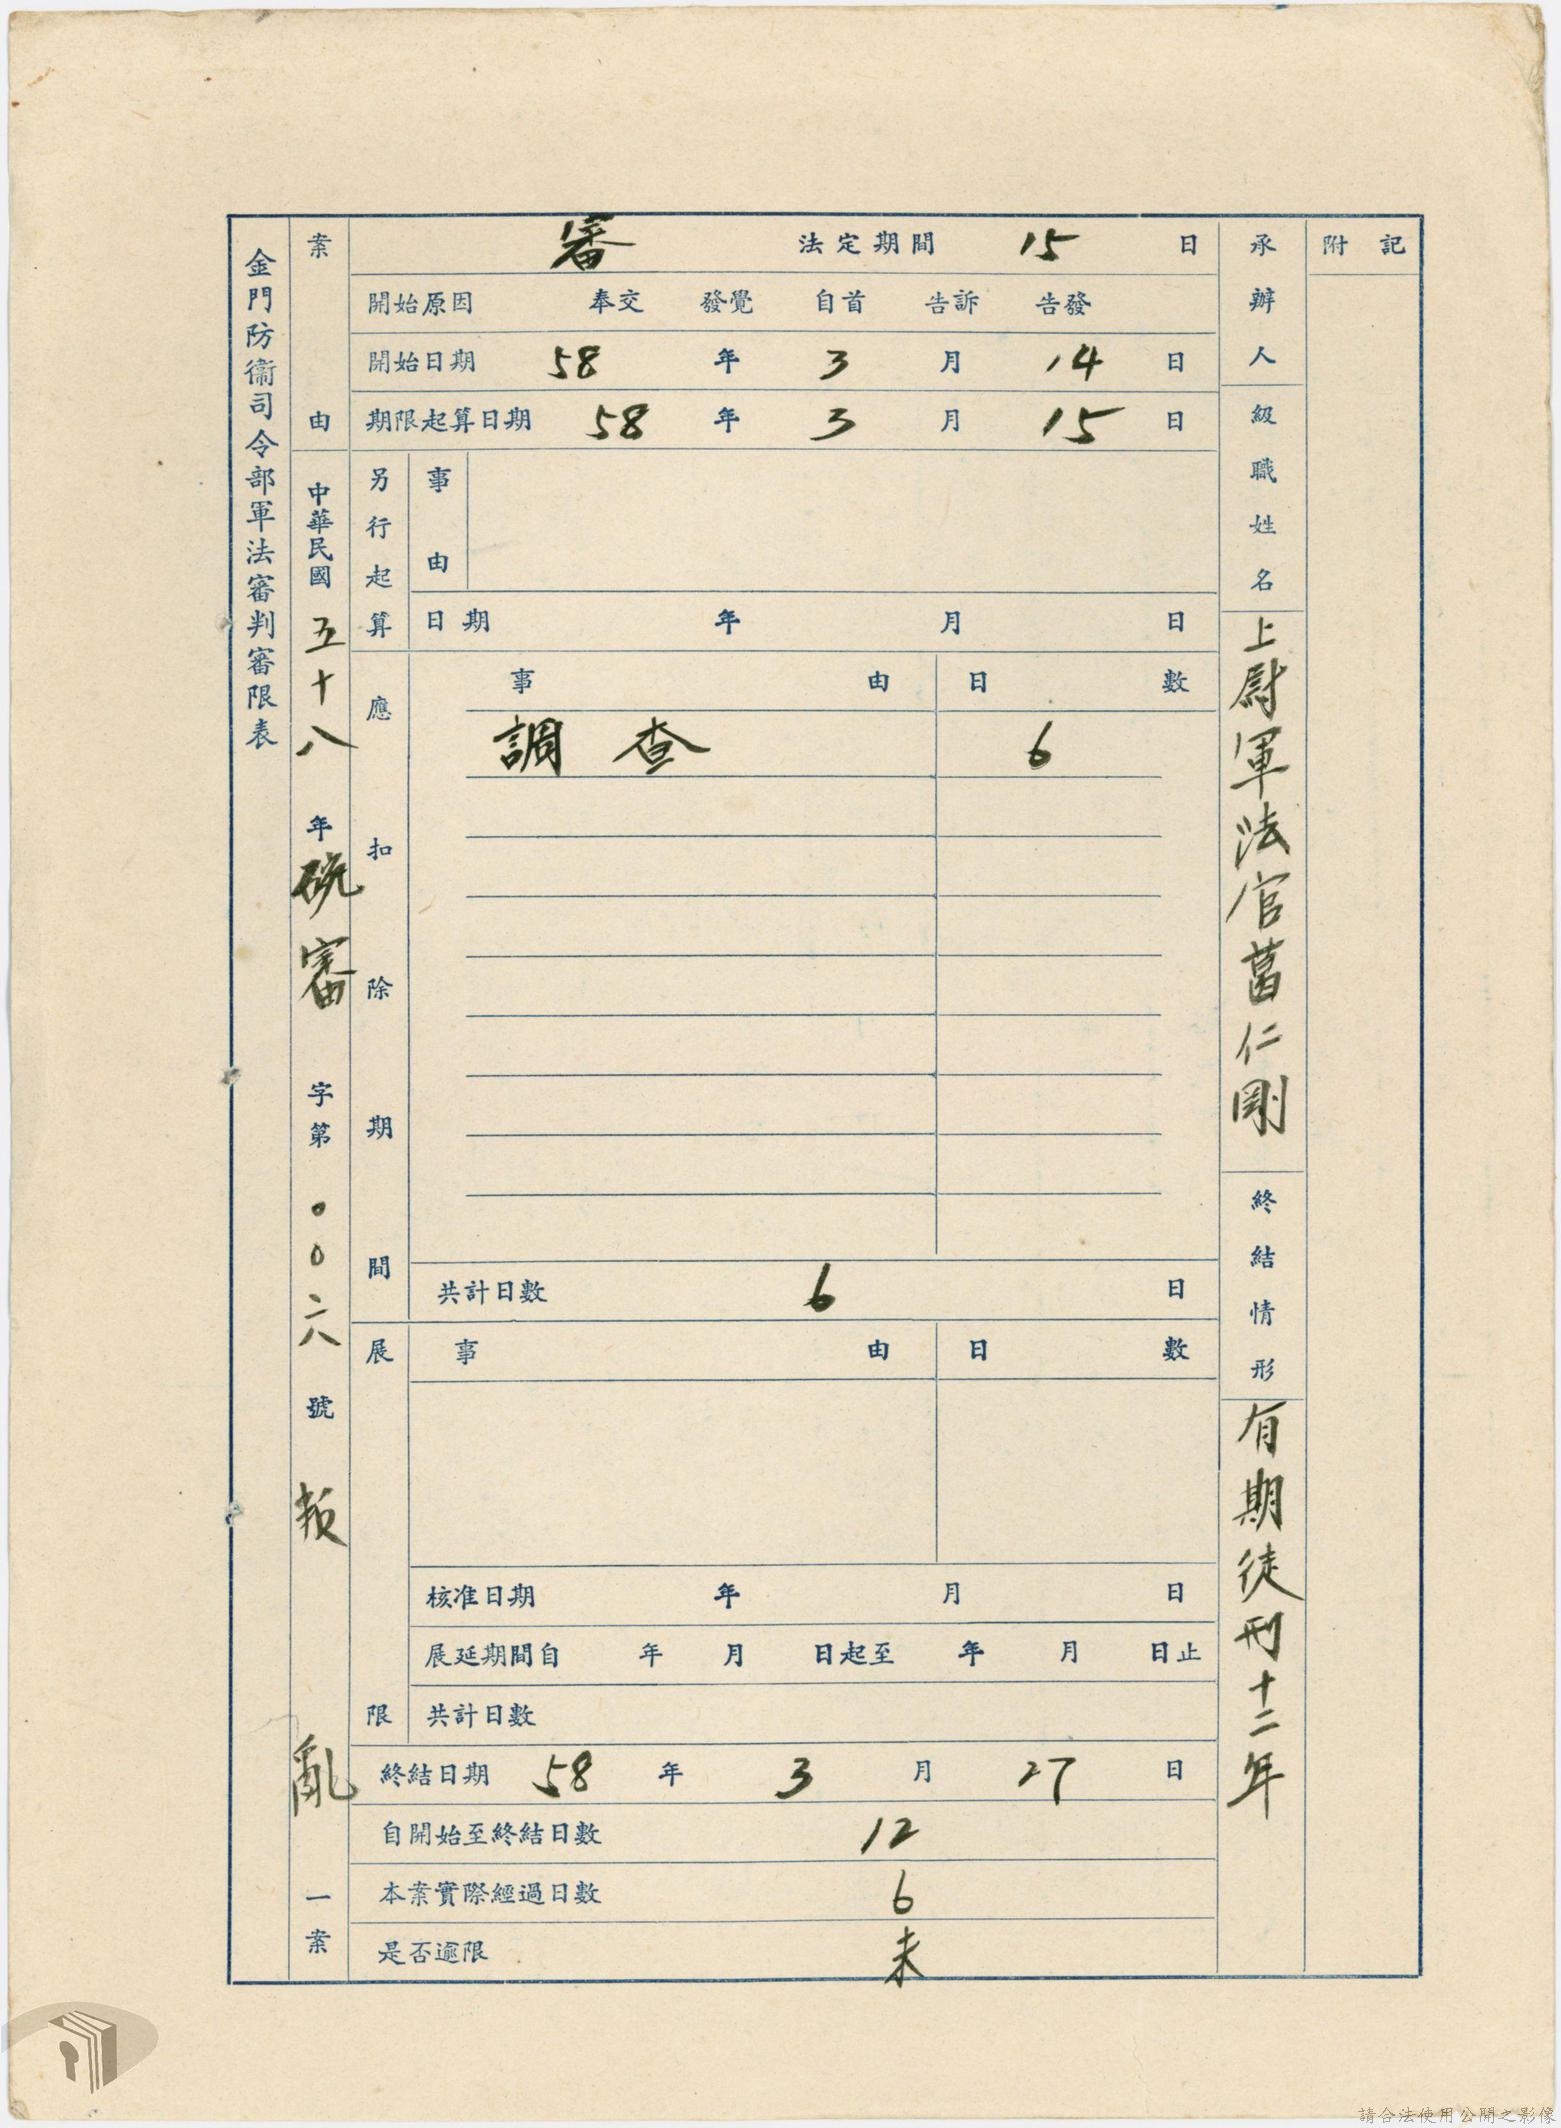 金門防衛司令部軍法審判審限表
案由
中華民國五十八年珫審字第〇〇六號叛亂一案
審 法定期間 15 日
開始原因 奉交 發覺 自首 告訴 告發
開始日期 58 年 3 月 14 日
期限起算日期 58 年 3 月 15 日
另行起算
事由
日期 年 月 日
應扣除期間
事由 日數
調查 6
共計日數 6 日
展限
事由 日數
核准日期 年 月 日
展延期間自 年 月 日起至 年 月 日止
共計日數
終結日期 58 年 3 月 27 日
自開始至終結日數 12
本案實際經過日數 6
是否逾限 未
承辦人
級職姓名
上尉軍法官葛仁剛
終結情形
有期徒刑十二年
附記
請合法使用公開之影像